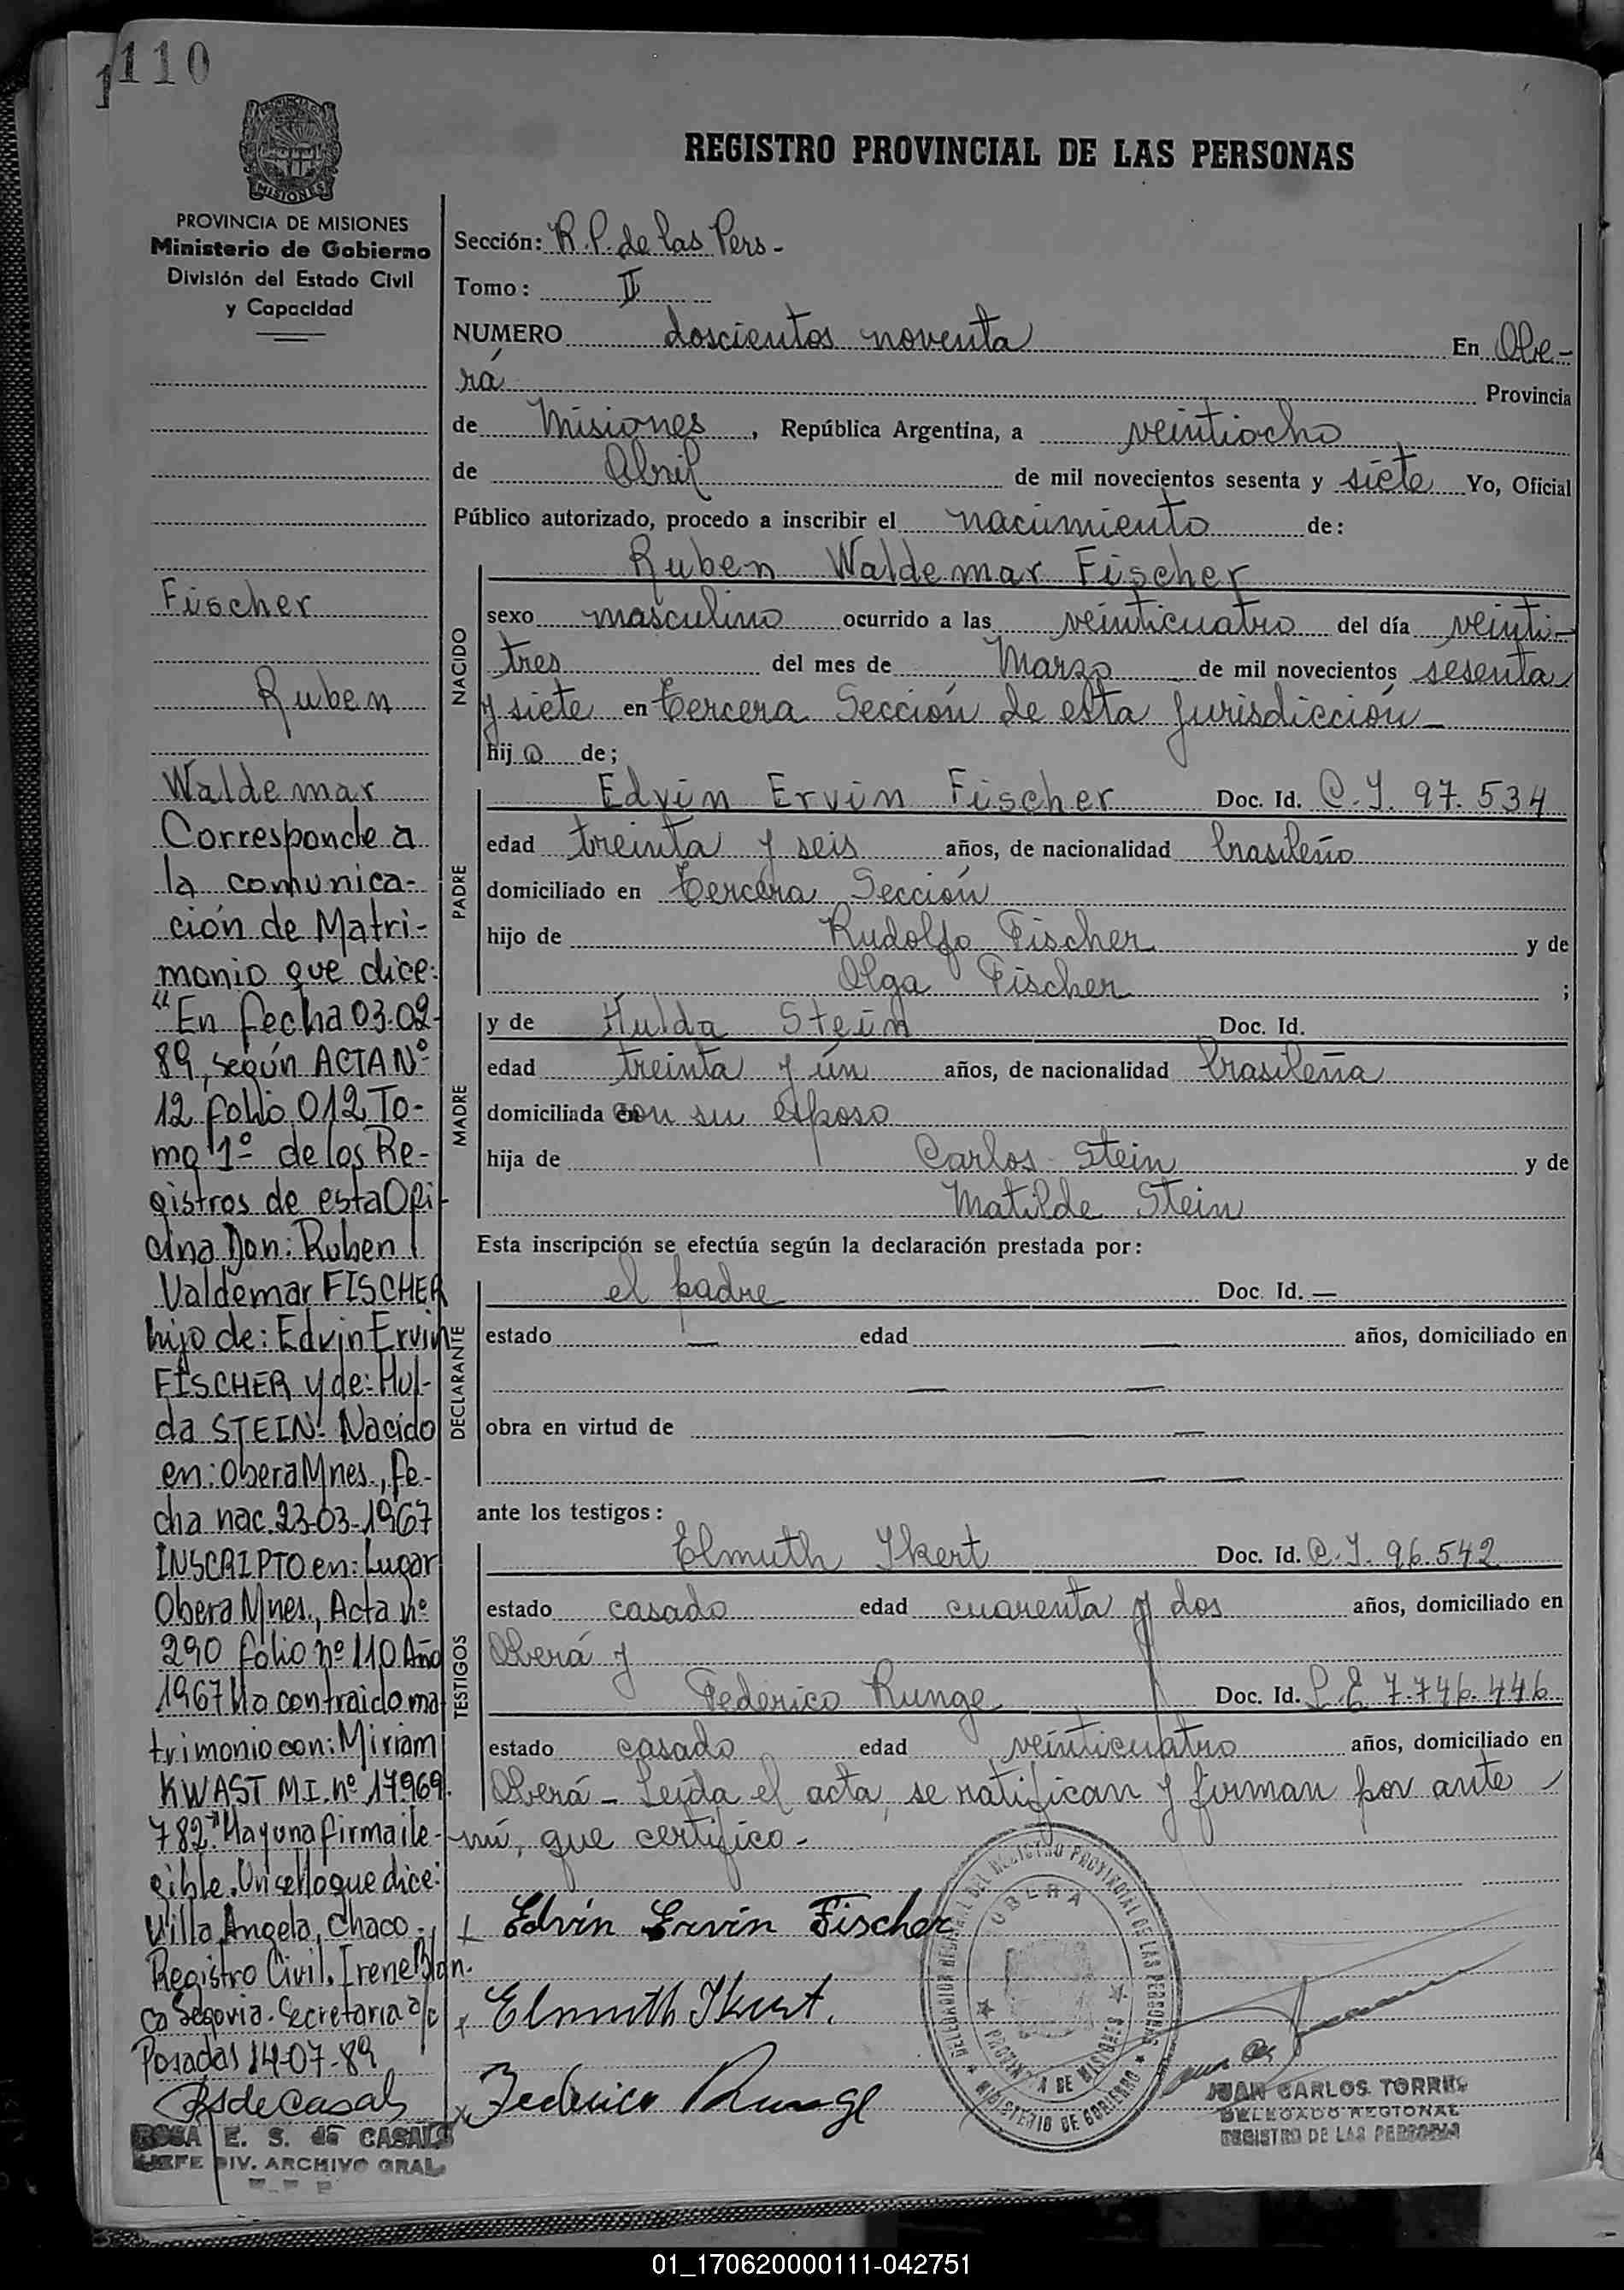 110
1
MISIONES
PROVINCIA DE MISIONES
Ministerio de Gobierno
División del Estado Civil
y Capacidad
Fischer
Ruben
Waldemar
Corresponde a
la comunica-
ción de Matri-
monio que dice:
"En fecha 03-02-
89, según ACTA Nº
12 folio 012 To-
mo 1º de los Re-
gistros de esta Ofi-
cina Don: Ruben
Valdemar FISCHER
hijo de: Edvin Ervin
FISCHER y de: Hul-
da STEIN. Nacido
en: Obera Mnes., fe-
cha nac. 23-03-1967
INSCRIPTO en: Lugar
Obera Mnes., Acta nº
290 folio nº 110 Año
1967 Ha contraido ma
trimonio con: Miriam
KWAST M.I. nº 17.969.
782." Hay una firma ile-
gible. Un sello que dice:
Villa Angela, Chaco.
Registro Civil. Irene Blan.
ca Segovia. Secretaria a/c
Posadas 14-07-89
RSdeCasals
ROSA E. S. de CASALS
JEFE DIV. ARCHIVO GRAL.
REGISTRO PROVINCIAL DE LAS PERSONAS
Sección: R. P. de las Pers -
Tomo: II
NUMERO doscientos noventa En Obe-
rá Provincia
de Misiones, República Argentina, a veintiocho
de Abril de mil novecientos sesenta y siete Yo, Oficial
Público autorizado, procedo a inscribir el nacimiento de:
NACIDO
Ruben Waldemar Fischer
sexo masculino ocurrido a las veinticuatro del día veinti-
tres del mes de Marzo de mil novecientos sesenta
y siete en Tercera Sección de esta jurisdicción -
hijo de;
PADRE
Edvin Ervin Fischer Doc. Id. C. I. 97.534
edad treinta y seis años, de nacionalidad brasileño
domiciliado en Tercera Sección
hijo de Rudolfo Fischer y de
Olga Fischer ;
MADRE
y de Hulda Stein Doc. Id.
edad treinta y un años, de nacionalidad brasileña
domiciliada con su esposo
hija de Carlos Stein y de
Matilde Stein
Esta inscripción se efectúa según la declaración prestada por:
DECLARANTE
el padre Doc. Id. —
estado — edad — años, domiciliado en
— —
obra en virtud de — —
— —
ante los testigos:
TESTIGOS
Elmuth Ikert Doc. Id. C. I. 96.542
estado casado edad cuarenta y dos años, domiciliado en
Oberá y
Federico Runge Doc. Id. L. E. 7.746.446
estado casado edad veinticuatro años, domiciliado en
Oberá - Leída el acta, se ratifican y firman por ante
mí, que certifico -
Edvin Ervin Fischer
Elmuth Ikert.
Federico Runge
DELEGACION REGIONAL DEL REGISTRO PROVINCIAL DE LAS PERSONAS
OBERA
PROVINCIA DE MISIONES
MINISTERIO DE GOBIERNO
JUAN CARLOS TORRES
DELEGADO REGIONAL
REGISTRO DE LAS PERSONAS
01_170620000111-042751